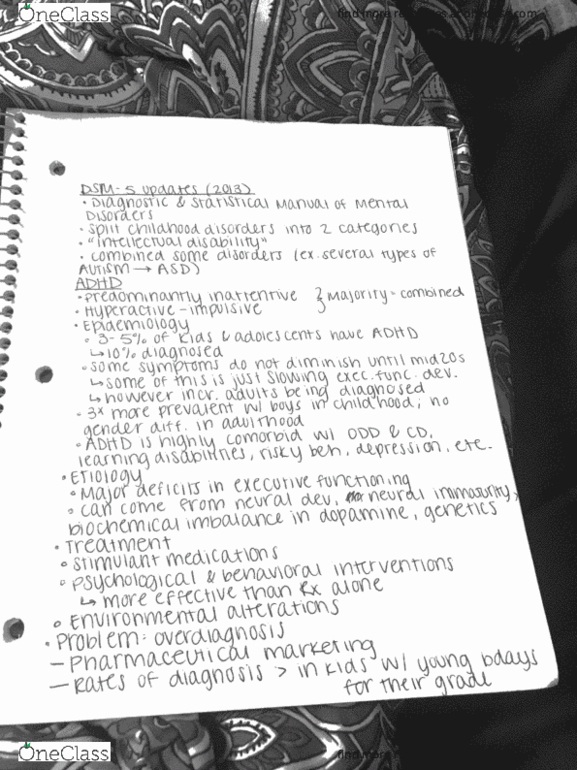 OneClass
find more resources at oneclass.com
DSM-5 updates (2013)
• Diagnostic & Statistical Manual of Mental
Disorders
• split childhood disorders into 2 categories
• "intellectual disability"
• combined some disorders (ex. several types of
Autism → ASD)
ADHD
• predominantly inattentive } Majority = combined
• Hyperactive-impulsive
• Epidemiology
◦ 3-5% of kids & adolescents have ADHD
↳ 10% diagnosed
◦ some symptoms do not diminish until mid 20s
↳ some of this is just slowing exec. func. dev.
↳ however incr. adults being diagnosed
◦ 3x more prevalent w/ boys in childhood, no
gender diff. in adulthood
◦ ADHD is highly comorbid w/ ODD & CD,
learning disabilities, risky beh, depression, etc.
• Etiology
◦ Major deficits in executive functioning
◦ can come from neural dev, neural immaturity,
biochemical imbalance in dopamine, genetics
• Treatment
◦ stimulant medications
◦ psychological & behavioral interventions
↳ more effective than Rx alone
◦ Environmental alterations
• Problem: overdiagnosis
— Pharmaceutical marketing
— Rates of diagnosis > in kids w/ young bdays
for their grade
OneClass
find more resources at oneclass.com